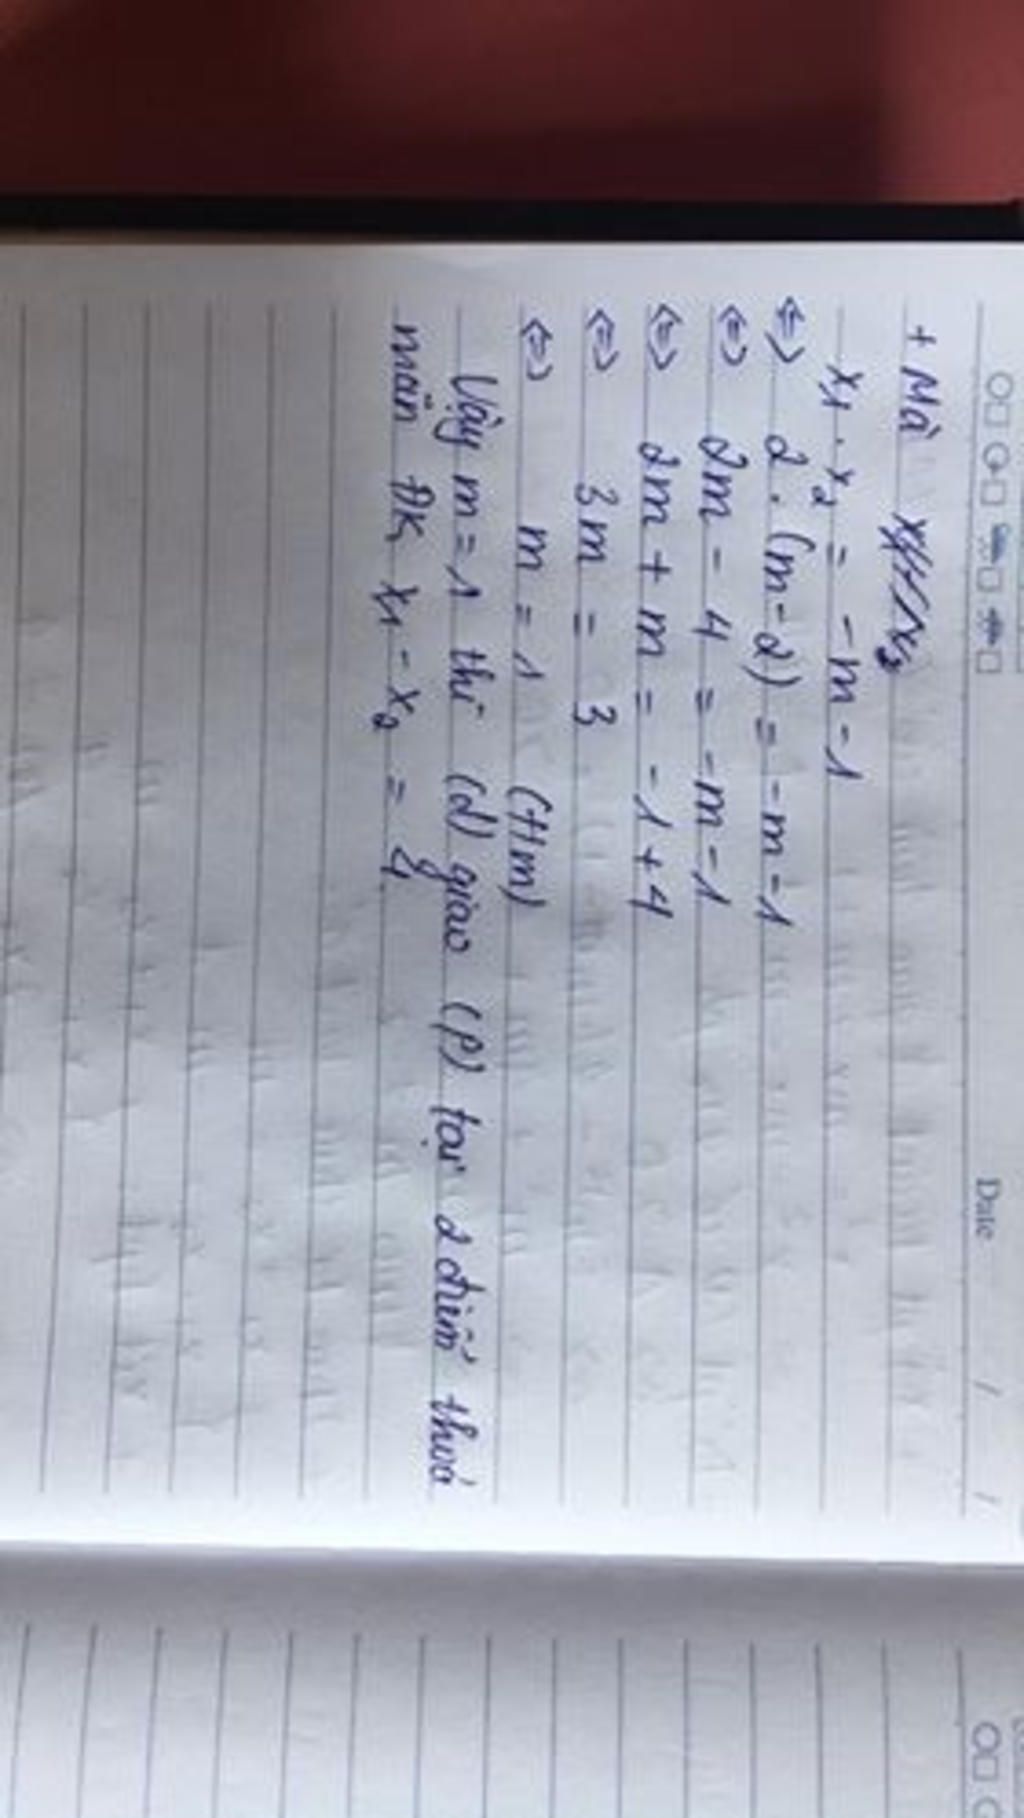 Date / /
+ Mà
x₁ . x₂ = -m -1
⇔ 2 . (m-2) = -m -1
⇔ 2m - 4 = -m -1
⇔ 2m + m = -1 + 4
⇔ 3m = 3
⇔ m = 1 (t/m)
Vậy m = 1 thì (d) giao (P) tại 2 điểm thoả
mãn ĐK x₁ - x₂ = 4